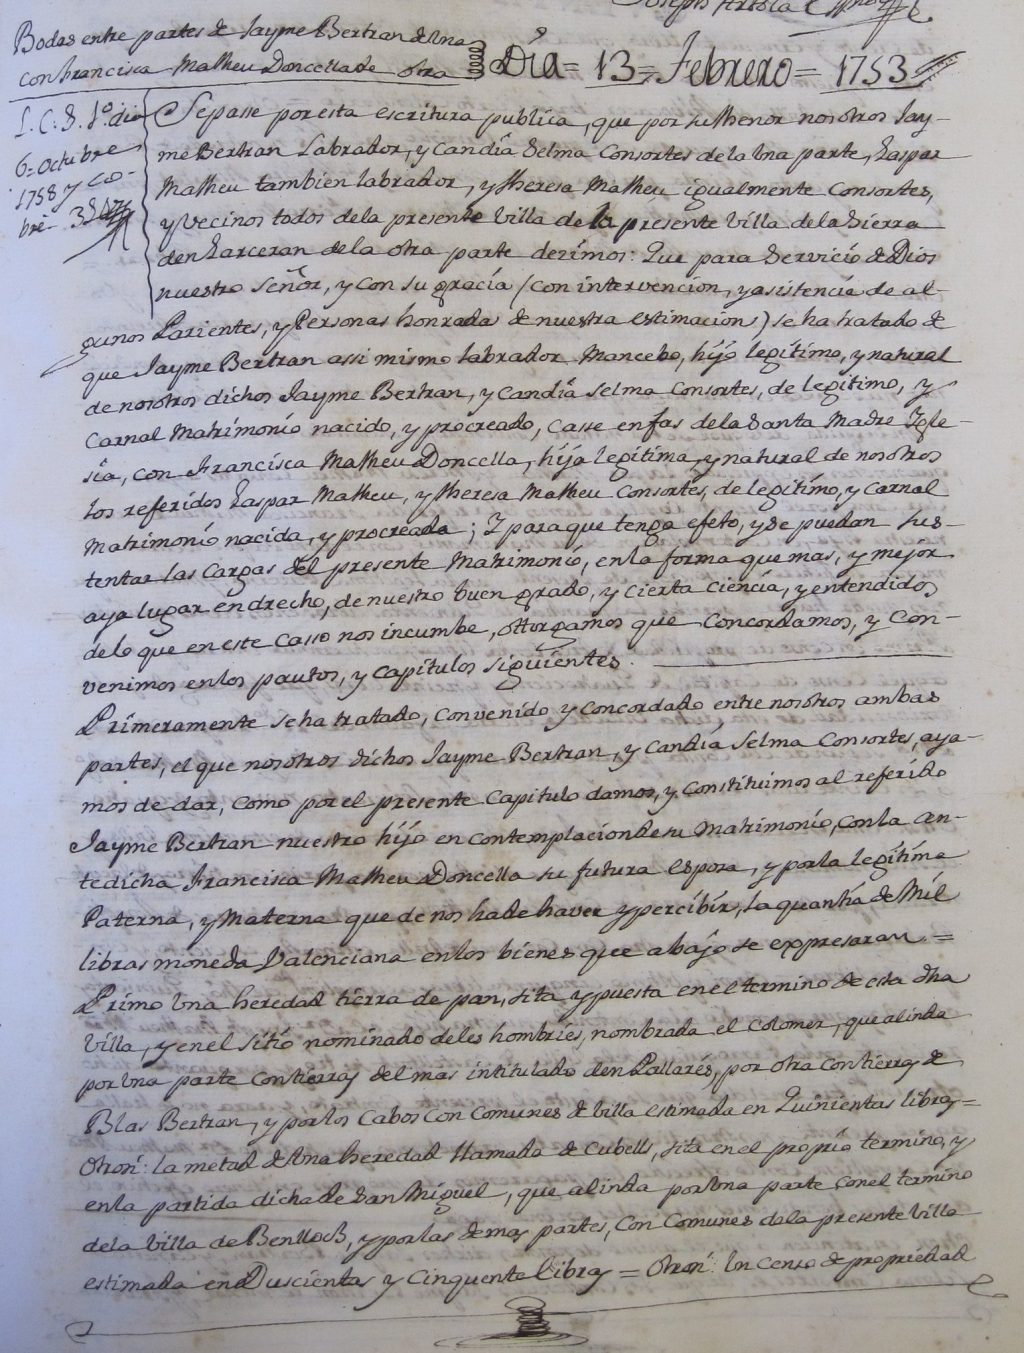 Joseph Artola
Bodas entre partes de Jayme Bertran de Una
con Francisca Matheu Doncella de otra
Dia = 13 = Febrero = 1753
6 = Octubre
1758 y co-
bre
Sepasse por esta escritura publica, que por su thenor nosotros Jay-
me Bertran Labrador, y Candia Selma Consortes de la Una parte, Gaspar
Matheu tambien labrador, y theresa Matheu igualmente Consortes,
y Vecinos todos dela presente Villa de la presente Villa dela Sierra
den Garceran dela otra parte dezimos: Que para Servicio de Dios
nuestro Señor, y con su gracia (con intervencion, y asistencia de al-
gunos Parientes, y Personas honradas de nuestra estimacion) se ha tratado de
que Jayme Bertran assi mismo labrador Mancebo, hijo legitimo, y natural
de nosotros dichos Jayme Bertran, y Candia Selma Consortes, de legitimo, y
Carnal Matrimonio nacido, y procreado, Casse en fas dela Santa Madre Igle-
sia, con Francisca Matheu Doncella, hija legitima, y natural de nosotros
los referidos Gaspar Matheu, y theresa Matheu Consortes, de legitimo, y Carnal
Matrimonio nacida, y procreada; Y para que tenga efeto, y se puedan sus-
tentar las Cargas del presente Matrimonio, en la forma que mas, y mejor
aya lugar en drecho, de nuestro buen grado, y cierta ciencia, y entendidos
delo que en este Casso nos incumbe, ottorgamos que Concordamos, y Con-
venimos en los pautos, y Capitulos siguientes.
Primeramente se ha tratado, Convenido y Concordado entre nosotros ambas
partes, el que nosotros dichos Jayme Bertran, y Candia Selma Consortes, aya-
mos de dar, Como por el presente Capitulo damos, y Constituimos al referido
Jayme Bertran nuestro hijo en contemplacion de su Matrimonio, con la an-
tedicha Francisca Matheu Doncella su futura Esposa, y por la legitima
Paterna, y Materna que de nos ha de haver y percibir, la quantia de Mil
libras moneda Valenciana en los bienes que abajo se expresaran =
Primo Una heredad tierra de pan, sita y puesta en el termino de esta dha
Villa, y en el sitio nominado deles hombries, nombrada el Colomer, que alinda
por Una parte Con tierras del mas intitulado den Pallarés, por otra con tierras de
Blas Bertran, y por los Cabos Con Comunes de Villa estimada en Quinientas libras =
Otrosi: la metad de Una heredad llamada de Cubells, sita en el proprio termino, y
en la partida dicha de San Miguel, que alinda por Una parte con el termino
dela Villa de Benlloch, y por las demas partes, Con Comunes dela presente Villa
estimada en Duscientas y Cinquenta libras = Otrosi: Un Censo de propriedad